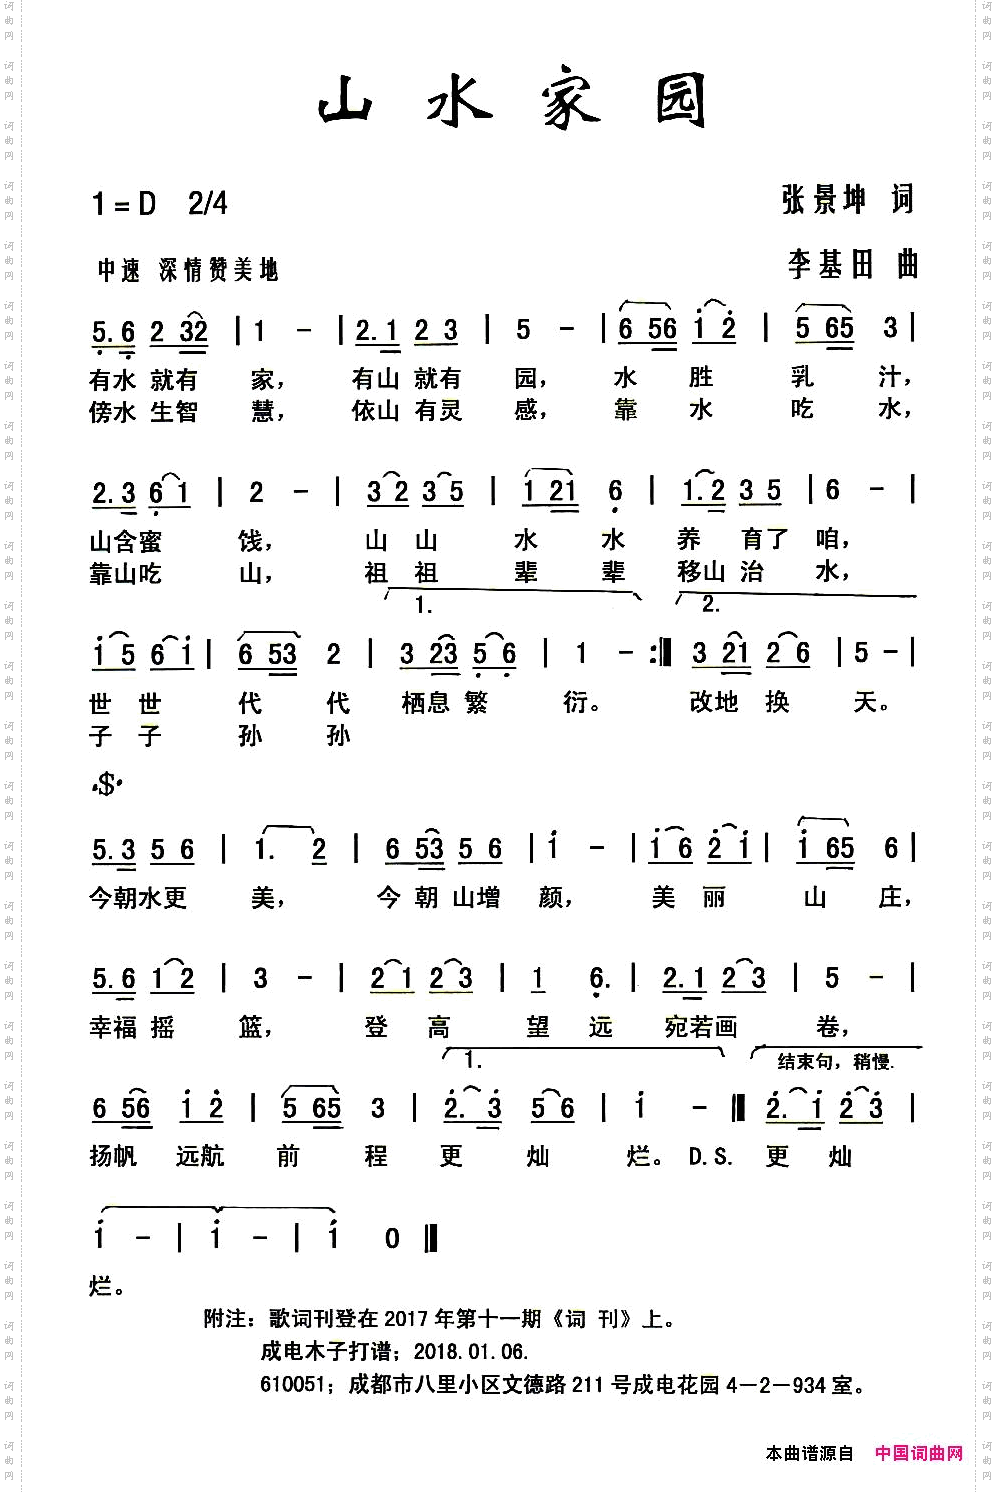 山水家园
1=D 2/4 张景坤 词
中速 深情赞美地 李基田 曲
5.6 2 32 | 1 - | 2.1 2 3 | 5 - | 6 56 1 2 | 5 65 3 |
有水 就有 家， 有山 就有 园， 水 胜 乳 汁，
傍水 生智 慧， 依山 有灵 感， 靠 水 吃 水，
2.3 6 1 | 2 - | 3 2 3 5 | 1 21 6 | 1.2 3 5 | 6 - |
山含蜜 饯， 山 山 水 水 养 育了 咱，
靠山吃 山， 祖 祖 辈 辈 移山 治 水，
1. 2.
1 5 6 1 | 6 53 2 | 3 23 5 6 | 1 - :‖ 3 21 2 6 | 5 - |
世 世 代 代 栖息 繁 衍。 改地 换 天。
子 子 孙 孙
·$·
5.3 5 6 | 1. 2 | 6 53 5 6 | 1 - | 1 6 2 1 | 1 65 6 |
今朝水更 美， 今 朝 山增 颜， 美 丽 山 庄，
5.6 1 2 | 3 - | 2 1 2 3 | 1 6. | 2.1 2 3 | 5 - |
幸福 摇 篮， 登 高 望 远 宛若画 卷，
1. 结束句，稍慢.
6 56 1 2 | 5 65 3 | 2. 3 5 6 | 1 - ‖ 2. 1 2 3 |
扬帆 远航 前 程 更 灿 烂。 D.S. 更 灿
1 - | 1 - | 1 0 ‖
烂。
附注：歌词刊登在2017年第十一期《词 刊》上。
成电木子打谱；2018.01.06.
610051；成都市八里小区文德路211号成电花园4－2－934室。
本曲谱源自 中国词曲网